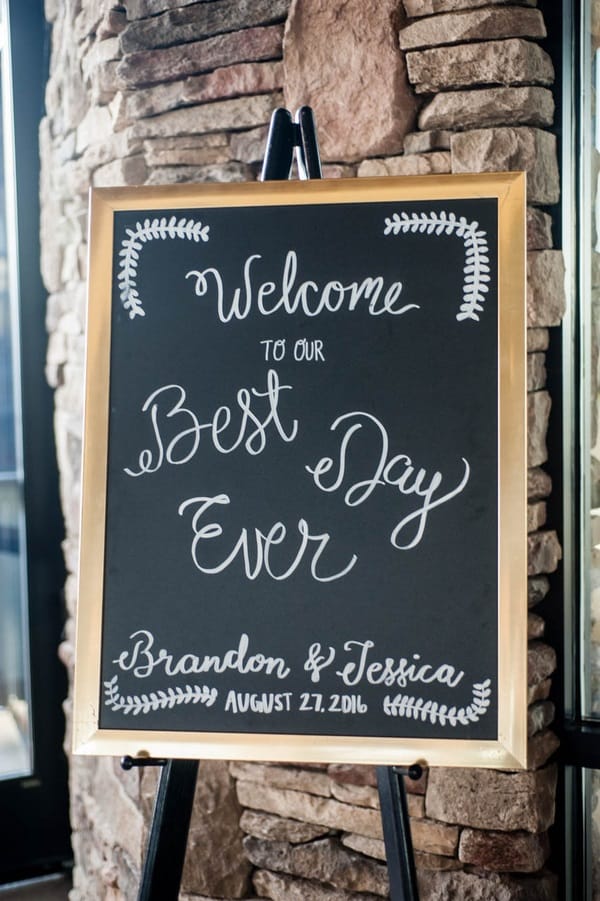 Welcome
TO OUR
Best Day
Ever
Brandon & Jessica
AUGUST 27, 2016